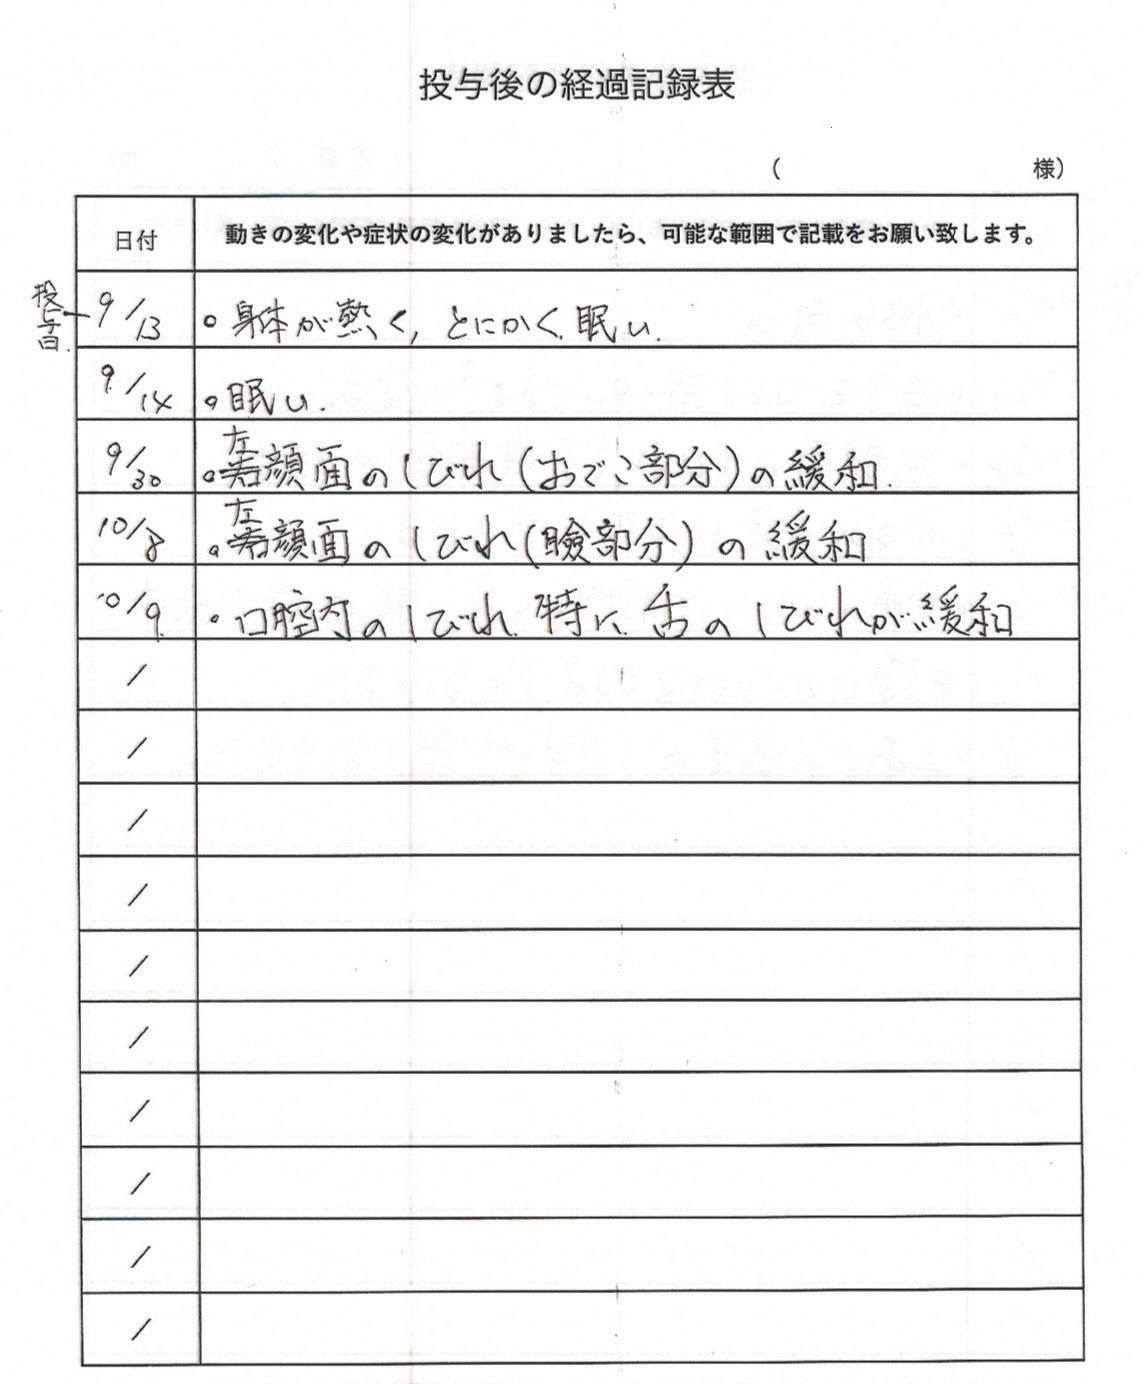 投与後の経過記録表
(　　　　　　　様)
日付 動きの変化や症状の変化がありましたら、可能な範囲で記載をお願い致します。
投与日 9/13 ○身体が熱く, とにかく眠い.
9/14 ○眠い.
9/30 ○左顔面のしびれ(おでこ部分)の緩和.
10/8 ○左顔面のしびれ(瞼部分)の緩和
10/9 ・口腔内のしびれ 特に舌のしびれが緩和
/
/
/
/
/
/
/
/
/
/